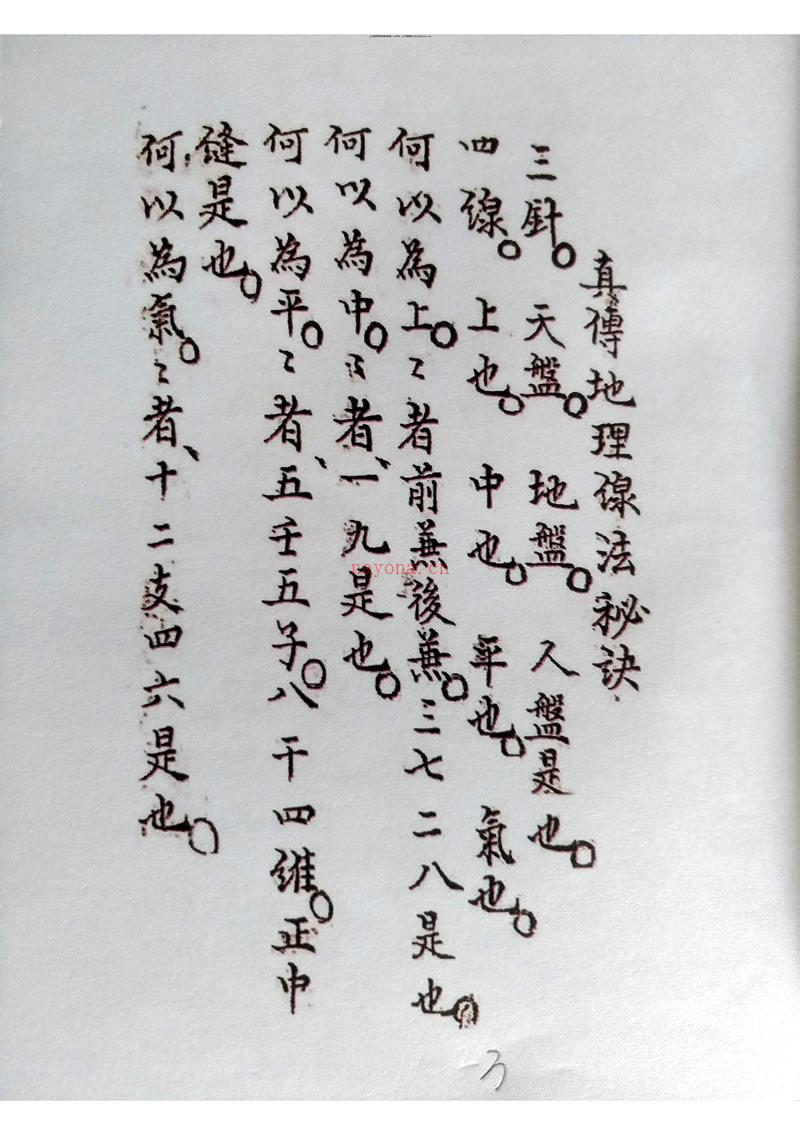 真傳地理線法秘訣
三針。天盤。地盤。人盤是也。
四線。上也。中也。平也。氣也。
何以為上。〻者前兼後兼。三七二八是也。
何以為中。〻者、一九是也。
何以為平。〻者、五壬五子。八干四維。正中
縫是也。
何以為氣。〻者、十二支四六是也。
nayona.cn